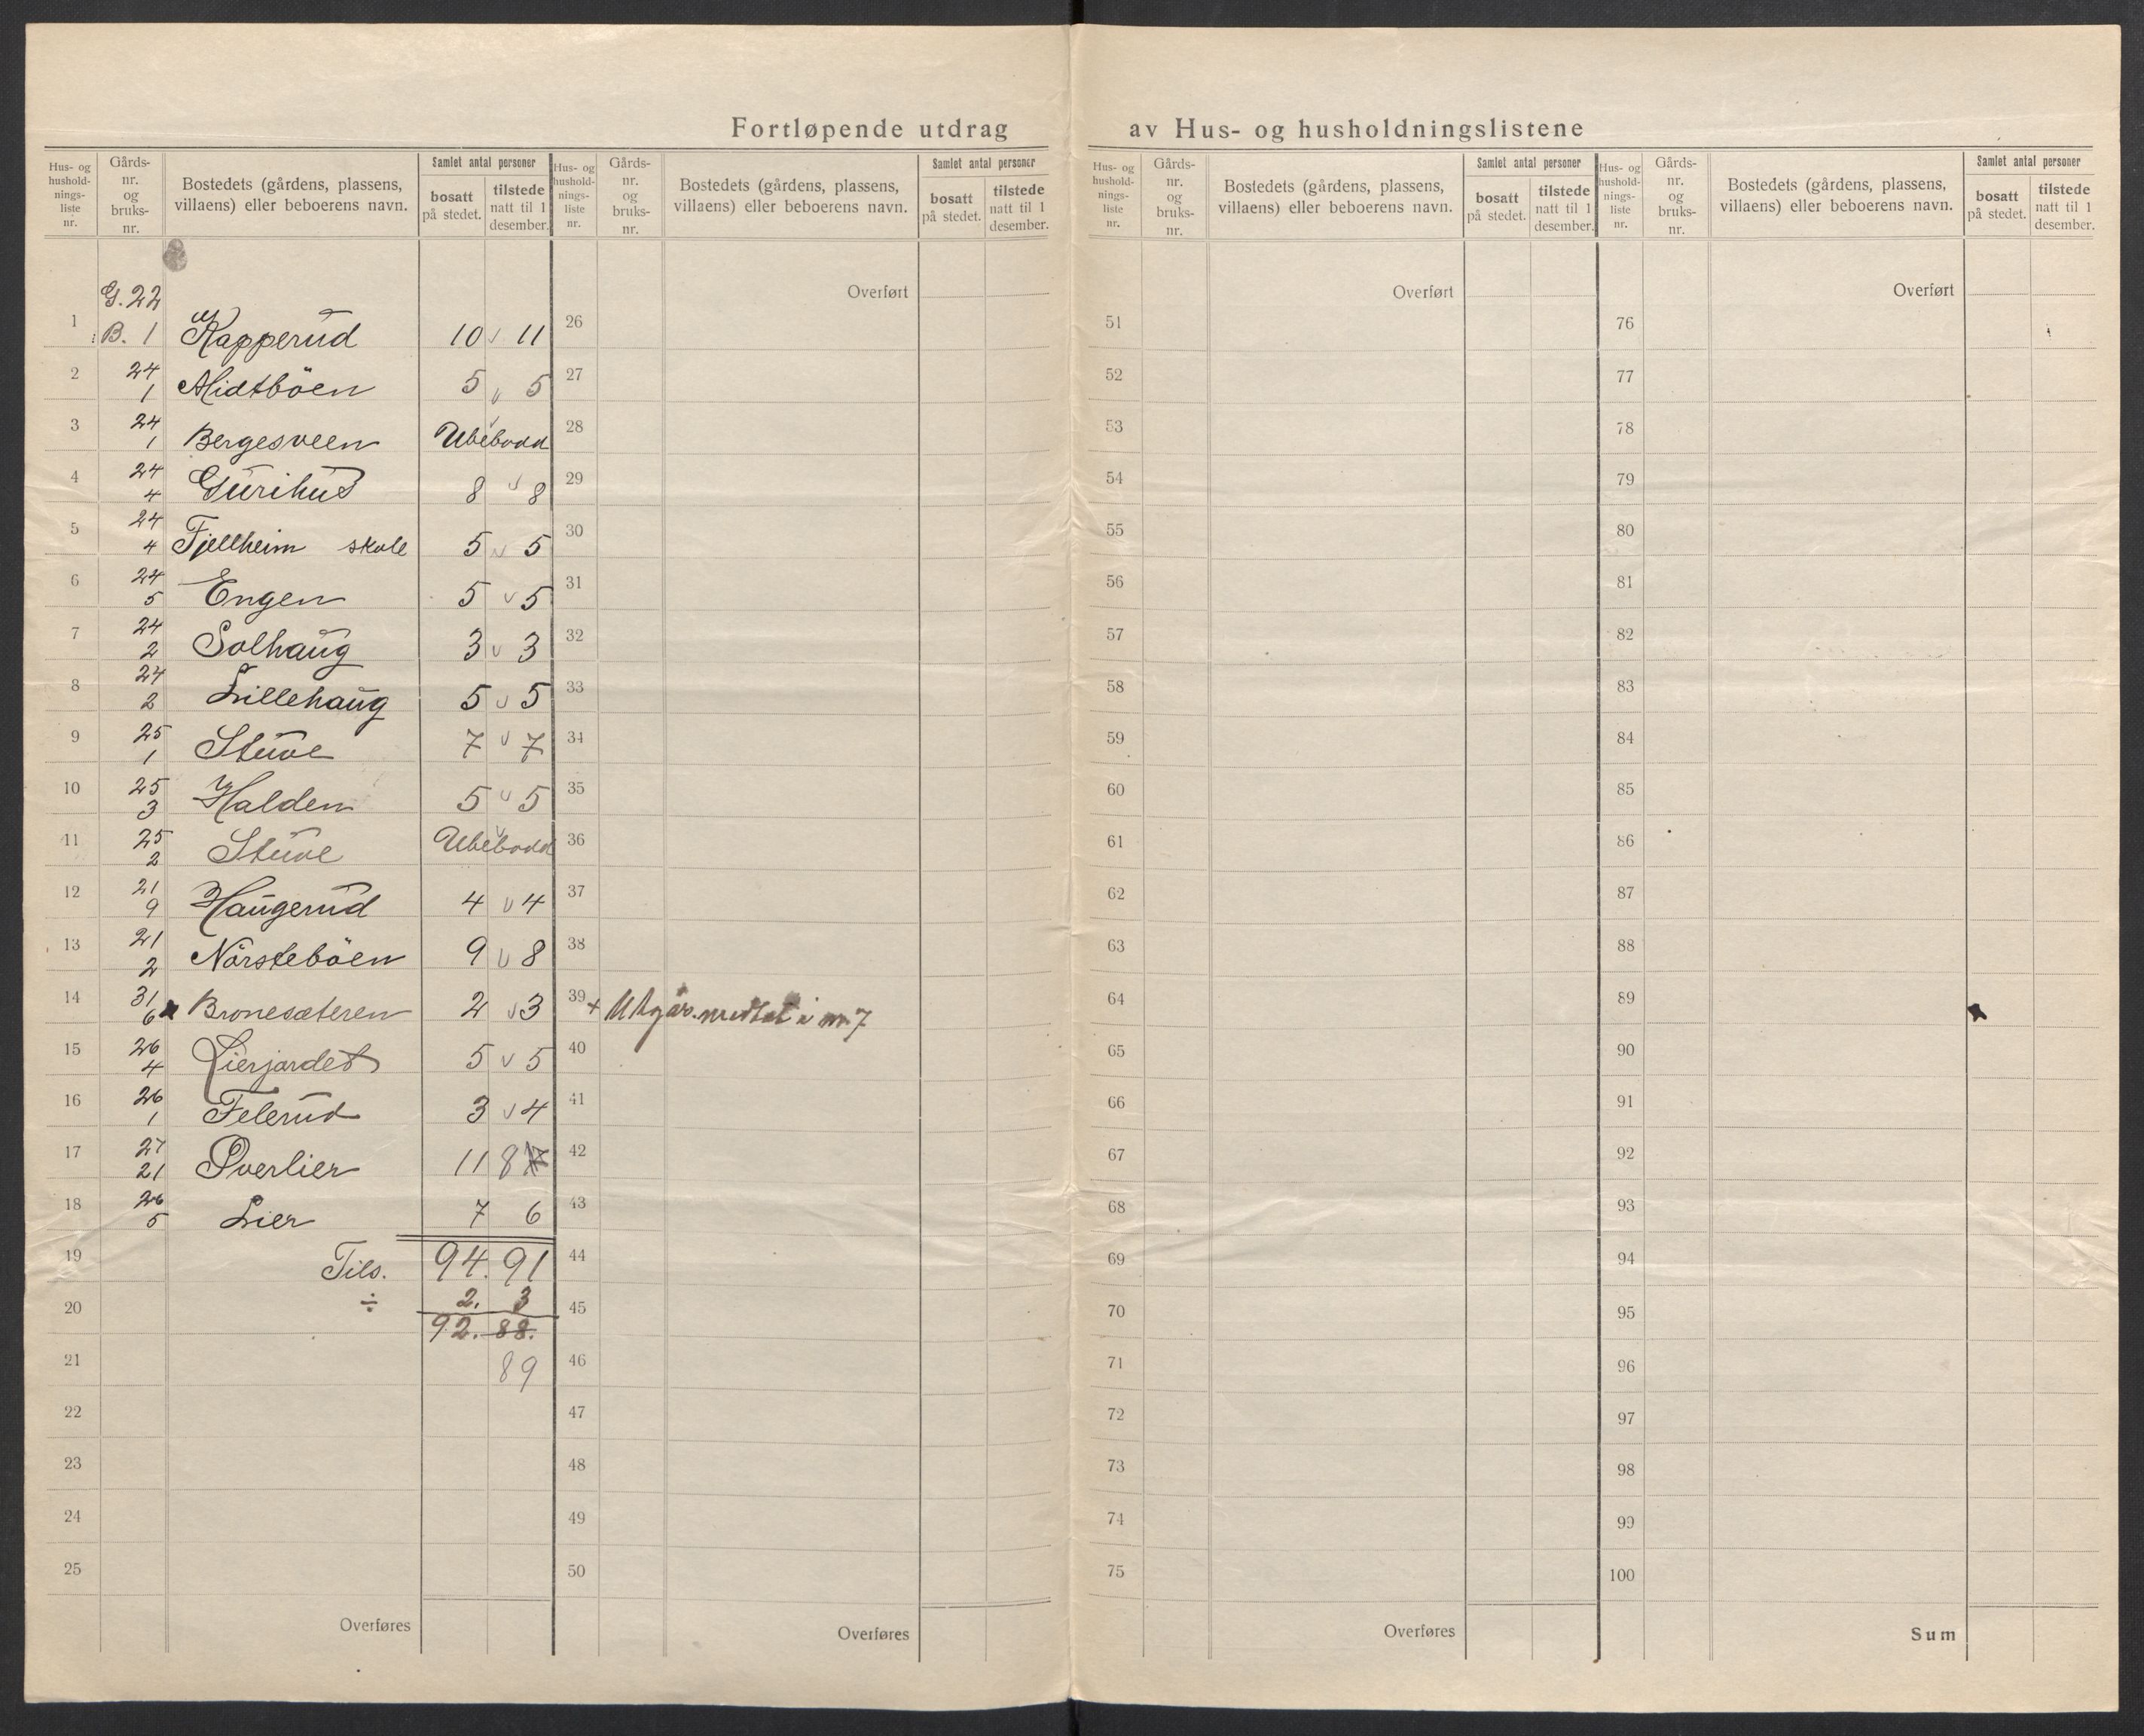 Fortløpende utdrag av Hus- og husholdningslistene
Hus- og hushold-nings-liste nr. Gårds-nr. og bruks-nr. Bostedets (gårdens, plassens, villaens) eller beboerens navn. Samlet antal personer bosatt på stedet. tilstede natt til 1 desember.
G. 22
1 B. 1 Kapperud 10 v 11
2 24 1 Midtböen 5 v 5
3 24 1 Bergesveen Ubebodd
4 24 4 Gurihus 8 v 8
5 24 4 Fjellheim skole 5 v 5
6 24 5 Engen 5 v 5
7 24 2 Solhaug 3 v 3
8 24 2 Lillehaug 5 v 5
9 25 1 Stuve 7 v 7
10 25 3 Halden 5 v 5
11 25 2 Stuve Ubebodd
12 21 9 Haugerud 4 v 4
13 21 2 Nørsteböen 9 v 8
14 31 6 Bronesæteren 2 v 3
15 26 4 Lierjordet 5 v 5
16 26 1 Felerud 3 v 4
17 27 21 Överlier 11 8
18 26 5 Lier 7 6
19 Tils. 94. 91
20 ÷ 2. 3
92. 88.
21 89
22
23
24
25
Overføres
Hus- og hushold-nings-liste nr. Gårds-nr. og bruks-nr. Bostedets (gårdens, plassens, villaens) eller beboerens navn. Samlet antal personer bosatt på stedet. tilstede natt til 1 desember.
Overført
26
27
28
29
30
31
32
33
34
35
36
37
38
39 + Utgår. medtat i nr. 7
40
41
42
43
44
45
46
47
48
49
50
Overføres
Hus- og hushold-nings-liste nr. Gårds-nr. og bruks-nr. Bostedets (gårdens, plassens, villaens) eller beboerens navn. Samlet antal personer bosatt på stedet. tilstede natt til 1 desember.
Overført
51
52
53
54
55
56
57
58
59
60
61
62
63
64
65
66
67
68
69
70
71
72
73
74
75
Overføres
Hus- og hushold-nings-liste nr. Gårds-nr. og bruks-nr. Bostedets (gårdens, plassens, villaens) eller beboerens navn. Samlet antal personer bosatt på stedet. tilstede natt til 1 desember.
Overført
76
77
78
79
80
81
82
83
84
85
86
87
88
89
90
91
92
93
94
95
96
97
98
99
100
Sum